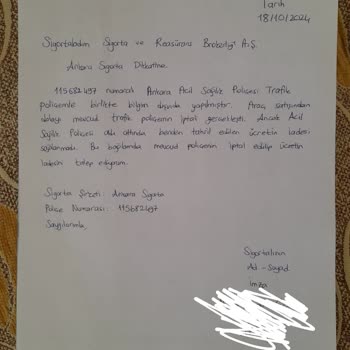 Tarih
18/10/2024
Sigortaladım Sigorta ve Reasürans Brokerliği A.Ş.
Ankara Sigorta Dikkatine.
115682497 numaralı Ankara Acil Sağlık Poliçesi Trafik
poliçemle birlikte bilgim dışında yapılmıştır. Araç satışından
dolayı mevcut trafik poliçemin iptali gerçekleşti. Ancak Acil
Sağlık Poliçesi adı altında benden tahsil edilen ücretin iadesi
sağlanmadı. Bu bağlamda mevcut poliçemin iptal edilip ücretin
iadesini talep ediyorum.
Sigorta Şirketi: Ankara Sigorta
Poliçe Numarası: 115682497
Saygılarımla,
Sigortalının
Ad - Soyad
İmza